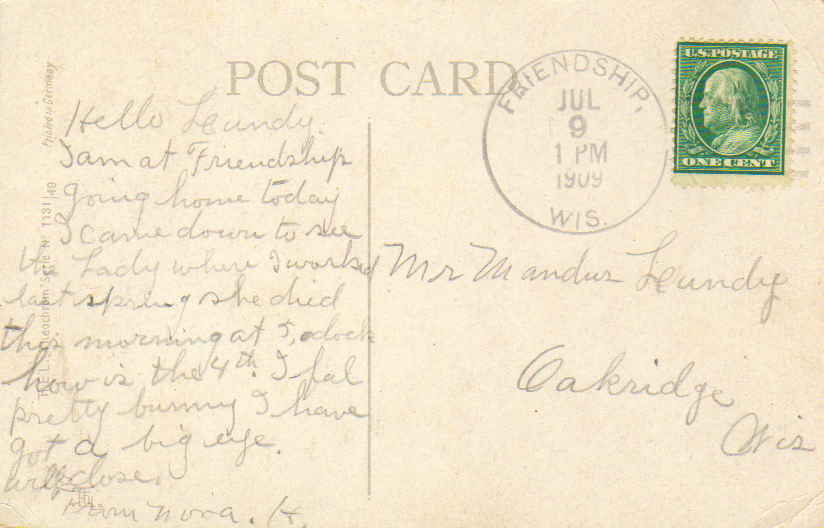 POST CARD
U.S. POSTAGE
ONE CENT
FRIENDSHIP,
JUL
9
1 PM
1909
WIS.
Printed in Germany
Serie No 1131/49
Hello Lundy.
I am at Friendship
going home today
I came down to see
the Lady where I worked
last spring she died
this morning at 5, oclock
how is the 4th. I fal
pretty bummy I have
got a big eye.
will close.
from Nora. H.
Mr Mandus Lundy
Oakridge
Wis